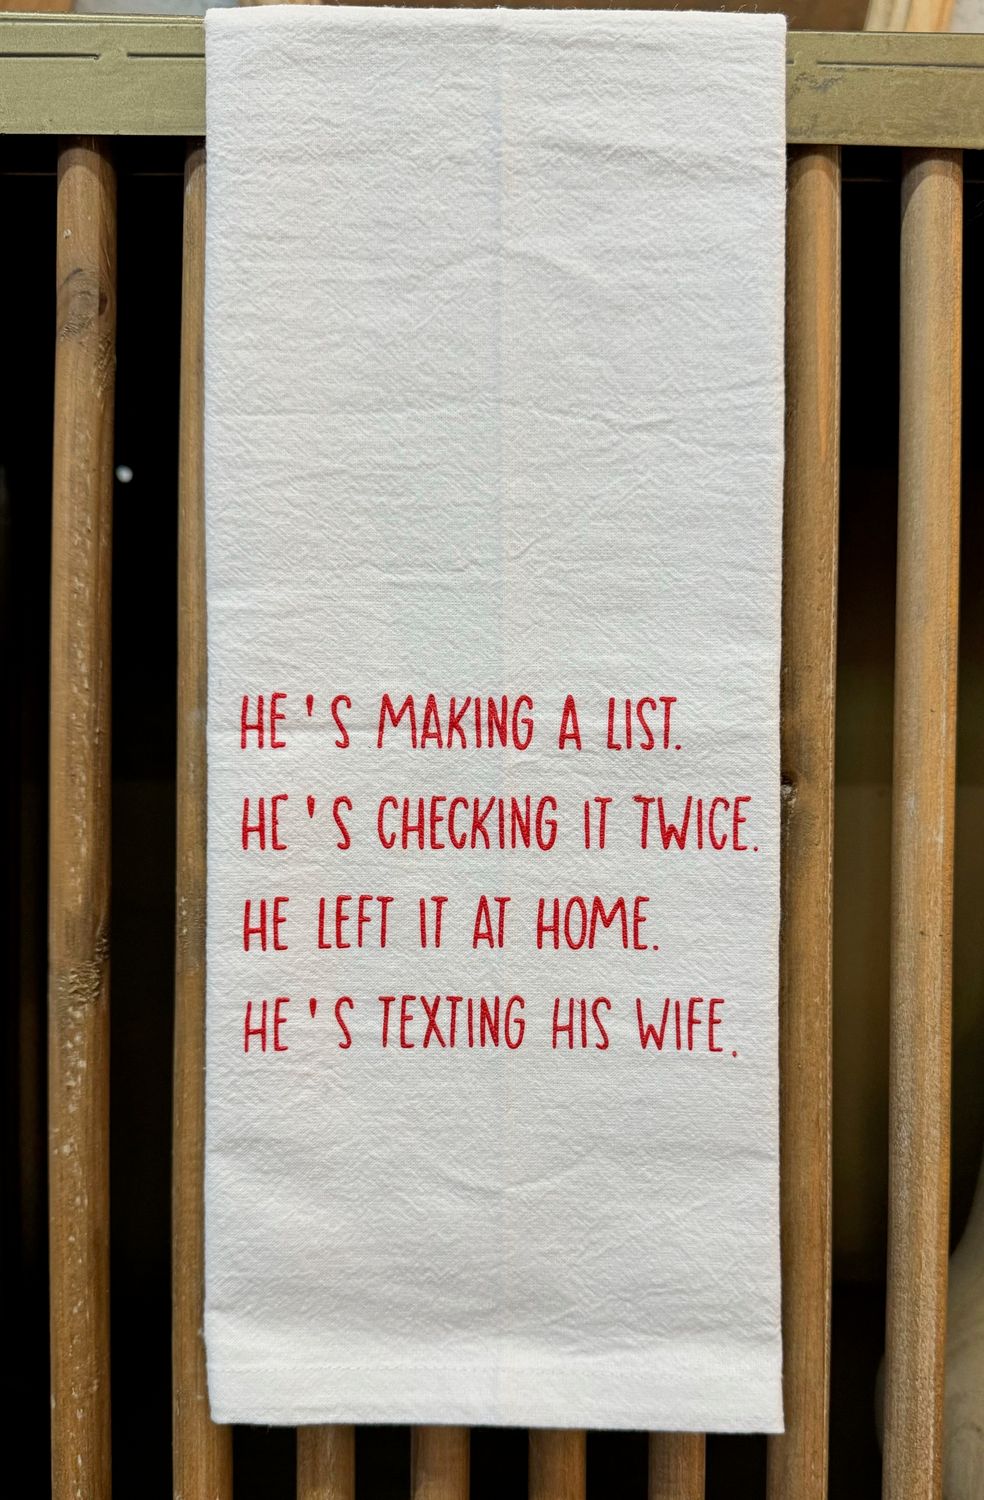 HE'S MAKING A LIST.
HE'S CHECKING IT TWICE.
HE LEFT IT AT HOME.
HE'S TEXTING HIS WIFE.